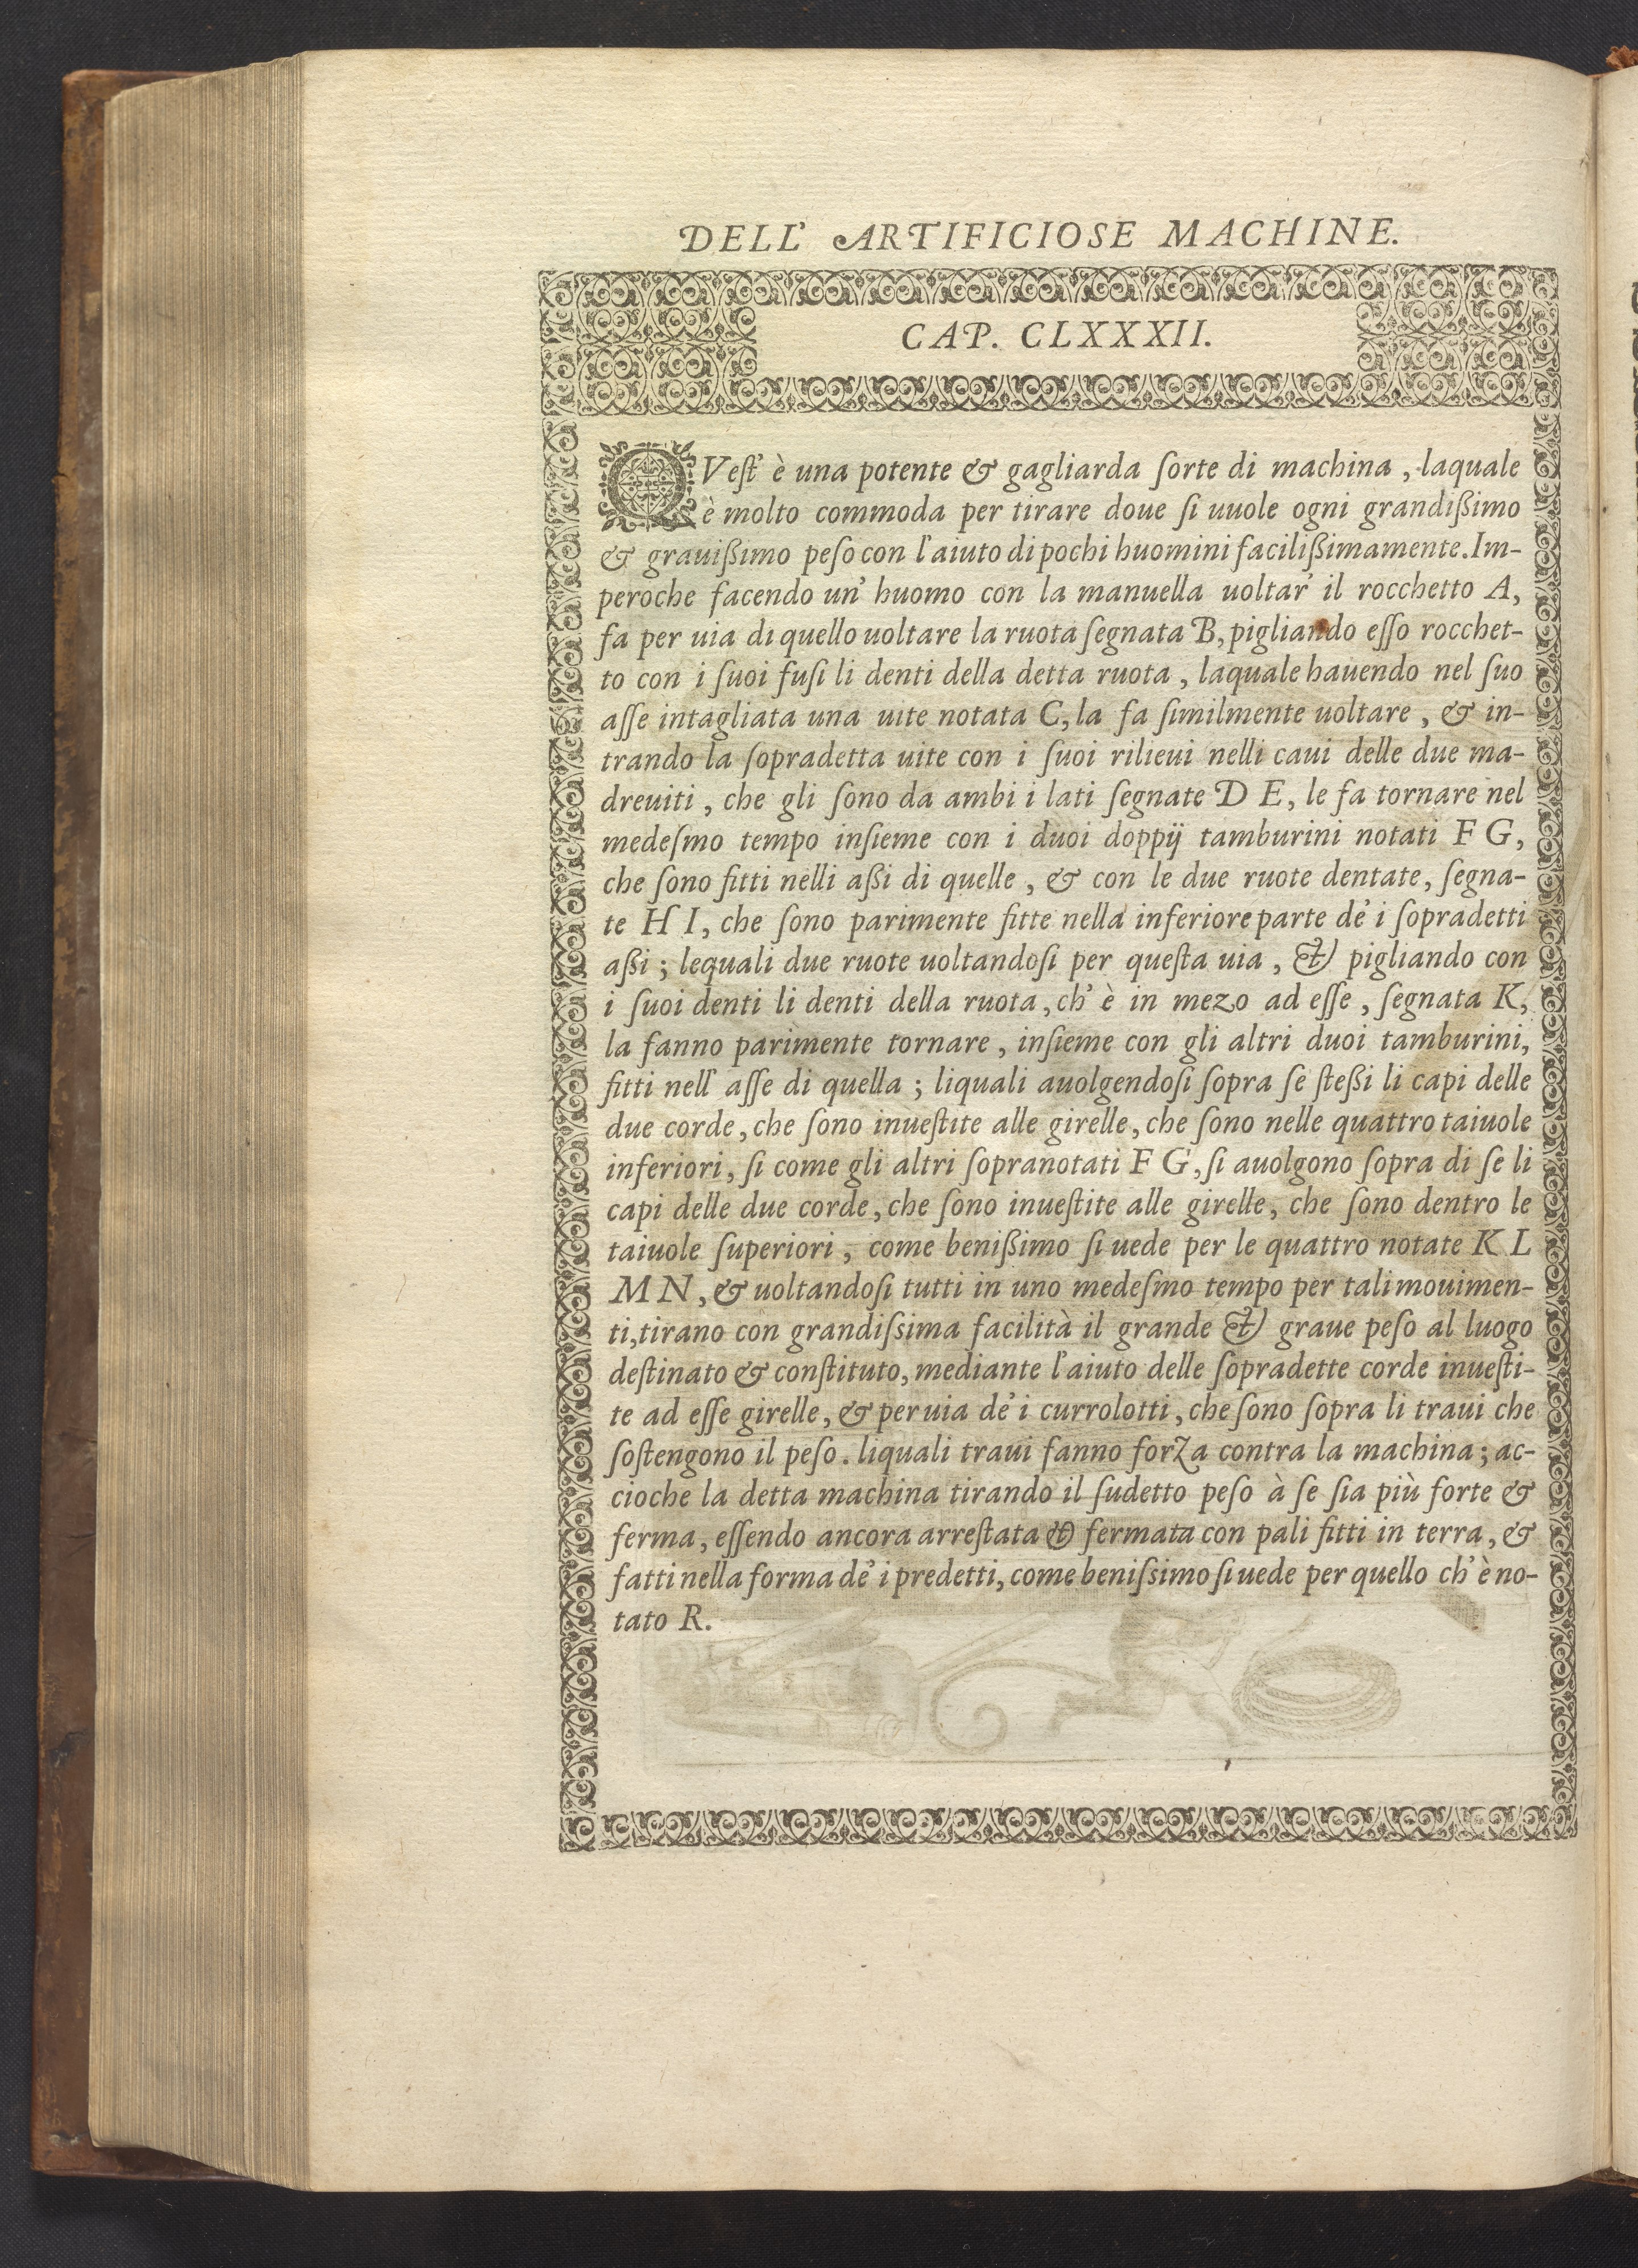 DELL' ARTIFICIOSE MACHINE.
CAP. CLXXXII.
QVeſt' è una potente & gagliarda ſorte di machina, laquale
è molto commoda per tirare doue ſi uuole ogni grandißimo
& grauißimo peſo con l'aiuto di pochi huomini facilißimamente. Im-
peroche facendo un' huomo con la manuella uoltar' il rocchetto A,
fa per uia di quello uoltare la ruota ſegnata B, pigliando eſſo rocchet-
to con i ſuoi fuſi li denti della detta ruota, laquale hauendo nel ſuo
aſſe intagliata una uite notata C, la fa ſimilmente uoltare, & in-
trando la ſopradetta uite con i ſuoi rilieui nelli caui delle due ma-
dreuiti, che gli ſono da ambi i lati ſegnate D E, le fa tornare nel
medeſmo tempo inſieme con i duoi doppij tamburini notati F G,
che ſono fitti nelli aßi di quelle, & con le due ruote dentate, ſegna-
te H I, che ſono parimente fitte nella inferiore parte de' i ſopradetti
aßi; lequali due ruote uoltandoſi per queſta uia, & pigliando con
i ſuoi denti li denti della ruota, ch' è in mezo ad eſſe, ſegnata K,
la fanno parimente tornare, inſieme con gli altri duoi tamburini,
fitti nell' aſſe di quella; liquali auolgendoſi ſopra ſe ſteßi li capi delle
due corde, che ſono inueſtite alle girelle, che ſono nelle quattro taiuole
inferiori, ſi come gli altri ſopranotati F G, ſi auolgono ſopra di ſe li
capi delle due corde, che ſono inueſtite alle girelle, che ſono dentro le
taiuole ſuperiori, come benißimo ſi uede per le quattro notate K L
M N, & uoltandoſi tutti in uno medeſmo tempo per tali mouimen-
ti, tirano con grandiſsima facilità il grande & graue peſo al luogo
deſtinato & conſtituto, mediante l'aiuto delle ſopradette corde inueſti-
te ad eſſe girelle, & per uia de' i currolotti, che ſono ſopra li traui che
ſoſtengono il peſo. liquali traui fanno forza contra la machina; ac-
cioche la detta machina tirando il ſudetto peſo à ſe ſia più forte &
ferma, eſſendo ancora arreſtata & fermata con pali fitti in terra, &
fatti nella forma de' i predetti, come beniſsimo ſi uede per quello ch' è no-
tato R.